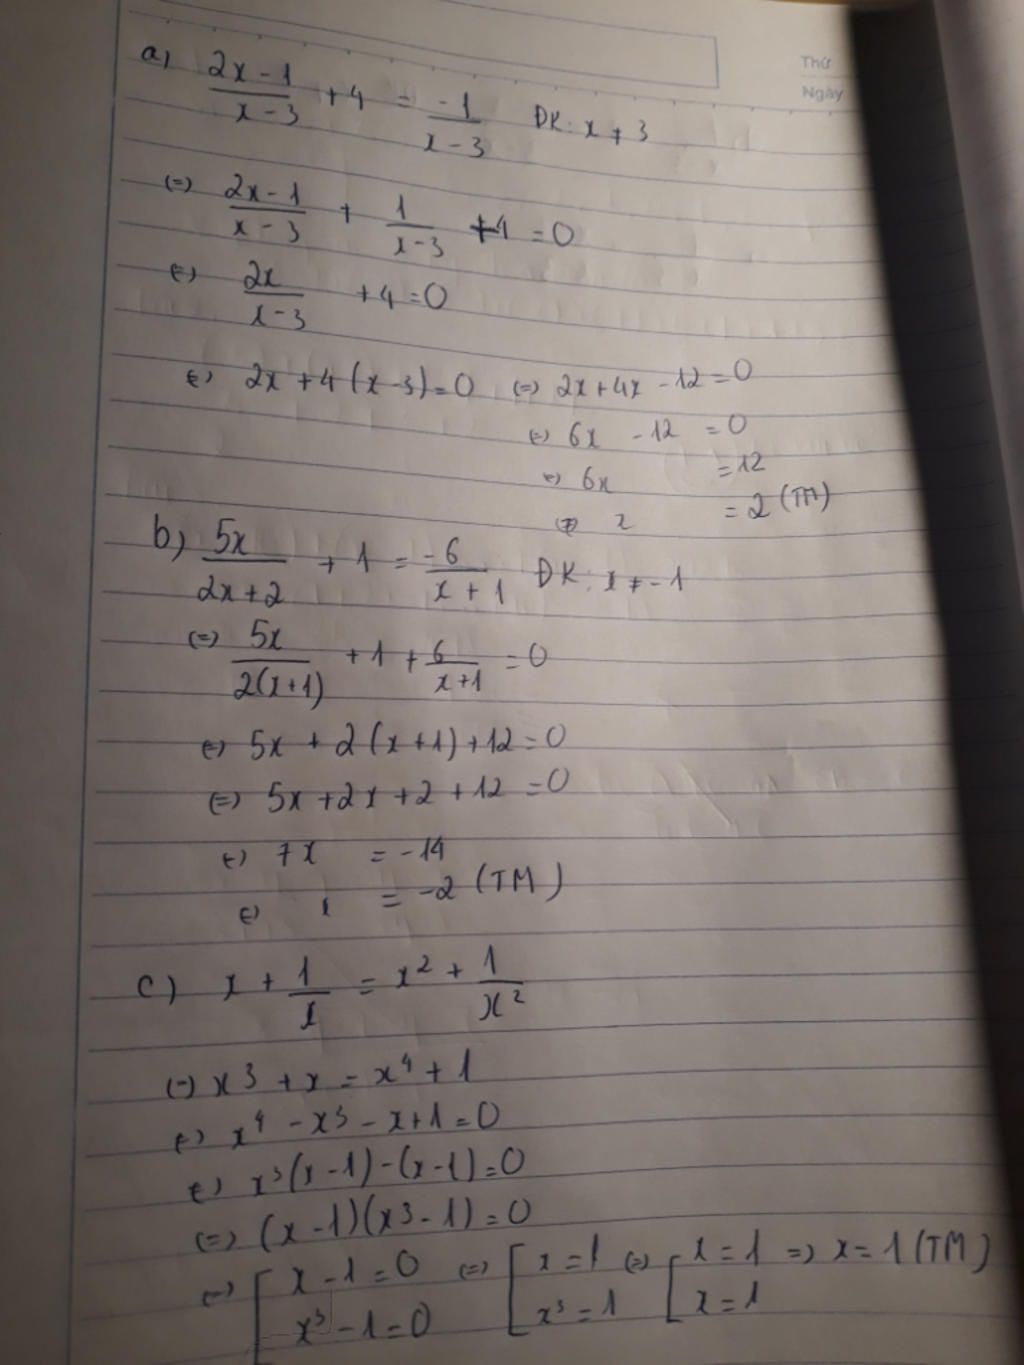 Thứ
Ngày
a) \frac{2x-1}{x-3} + 4 = \frac{-1}{x-3} ĐK: x ≠ 3
(=) \frac{2x-1}{x-3} + \frac{1}{x-3} + 4 = 0
(=) \frac{2x}{x-3} + 4 = 0
(=) 2x + 4(x-3) = 0 (=) 2x + 4x - 12 = 0
(=) 6x - 12 = 0
(=) 6x = 12
(=) x = 2 (TM)
b) \frac{5x}{2x+2} + 1 = \frac{-6}{x+1} ĐK: x ≠ -1
(=) \frac{5x}{2(x+1)} + 1 + \frac{6}{x+1} = 0
(=) 5x + 2(x+1) + 12 = 0
(=) 5x + 2x + 2 + 12 = 0
(=) 7x = -14
(=) x = -2 (TM)
c) x + \frac{1}{x} = x² + \frac{1}{x²}
(=) x³ + x = x⁴ + 1
(=) x⁴ - x³ - x + 1 = 0
(=) x³(x-1) - (x-1) = 0
(=) (x-1)(x³-1) = 0
(=) [ x - 1 = 0 (=) [ x = 1 (=) [ x = 1 => x = 1 (TM)
x³ - 1 = 0 x³ = 1 x = 1